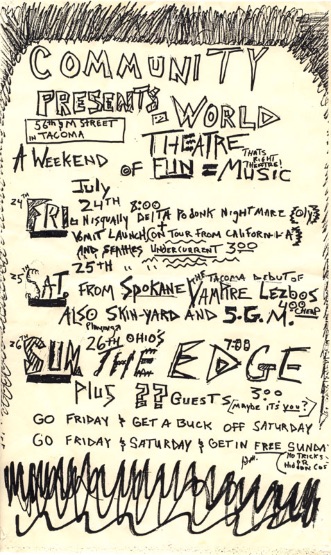 COMMUNITY
PRESENTS @ WORLD
56th & M STREET
IN TACOMA
THEATRE
THATS RIGHT THEATRE!
A WEEKEND OF FUN = MUSIC
July
24th FRI 24TH 8:00
NISQUALLY DELTA PODONK NIGHTMARE {OLY}
+ VOMIT LAUNCH (ON TOUR FROM CALIFORNIA)
AND SEATTLES UNDERCURRENT 3.00
25th SAT. 25TH
FROM SPOKANE THE VAMPIRE LEZBOS
TACOMA DEBUT OF
ALSO SKIN-YARD AND S.G.M.
4.00 CHEAP
26 SUN Playing 26TH OHIO'S 7:00
THE EDGE
PLUS ?? GUESTS 3.00
(MAYBE IT'S YOU?)
GO FRIDAY & GET A BUCK OFF SATURDAY
GO FRIDAY & SATURDAY & GET IN FREE SUNDAY
NO TRICKS OR HIDDEN COST